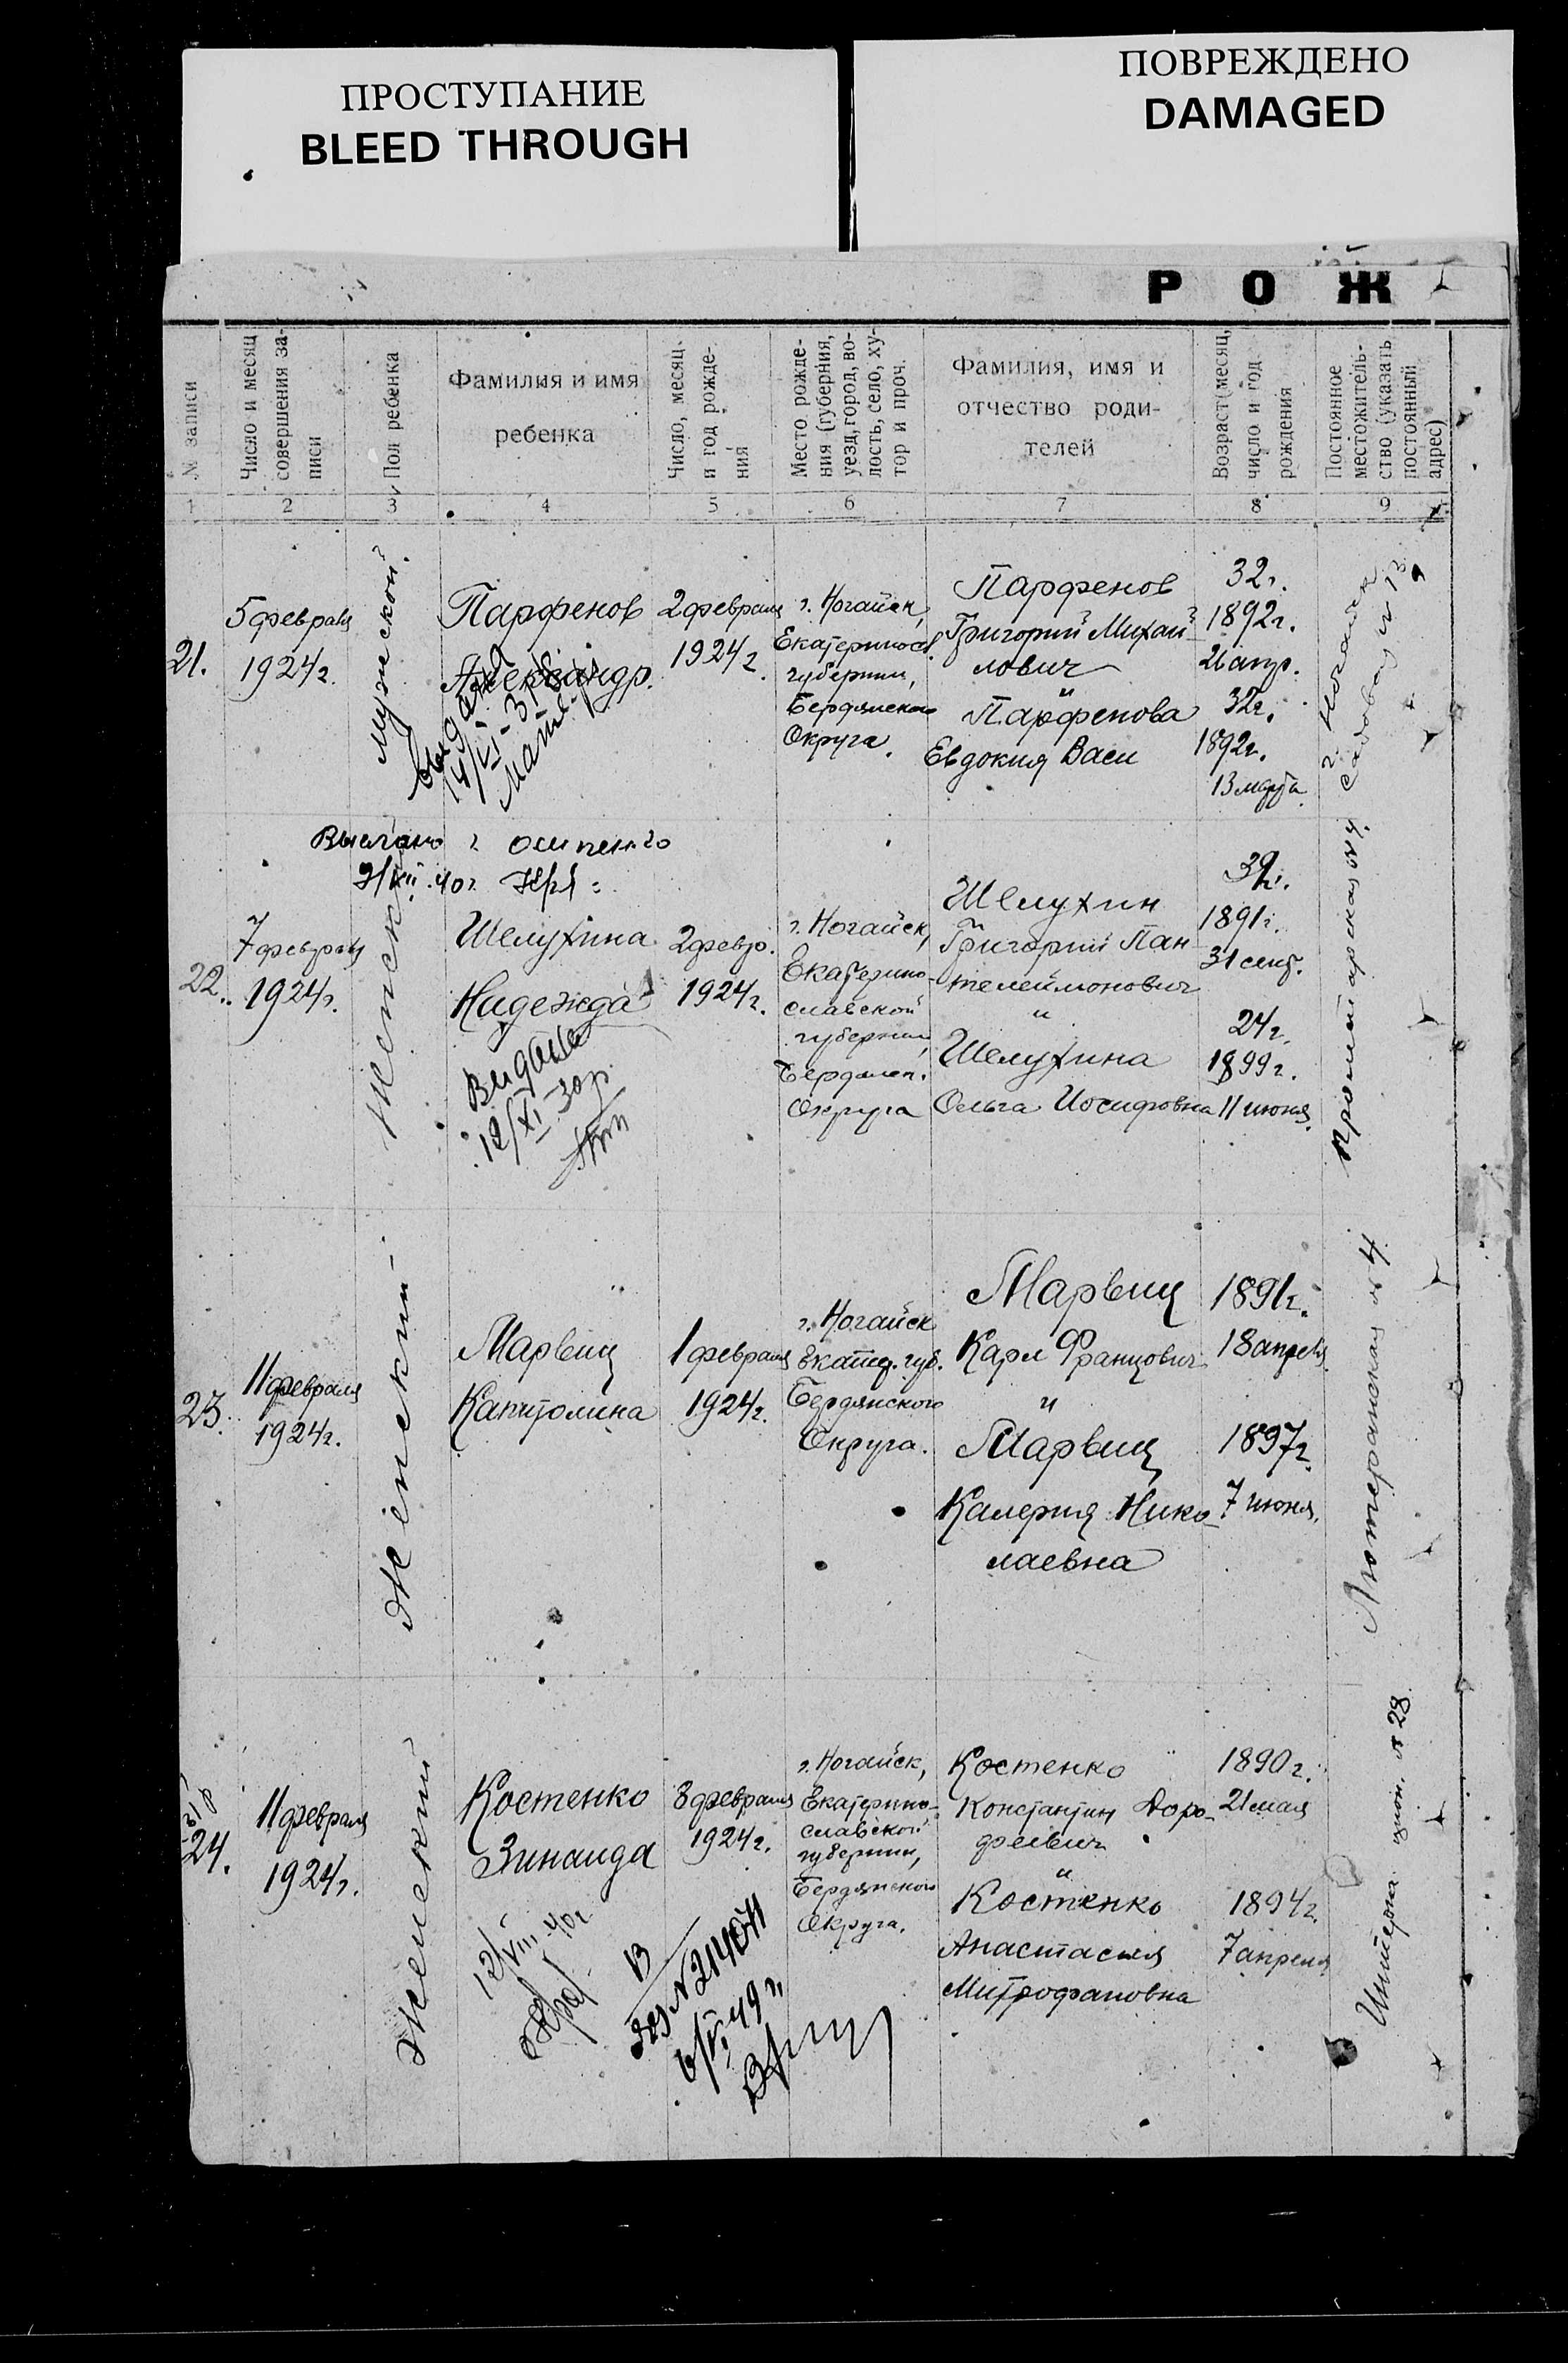 ПРОСТУПАНИЕ
BLEED THROUGH
ПОВРЕЖДЕНО
DAMAGED
Р О Ж
№ записи
Число и месяц
совершения за-
писи
Пол ребенка
Фамилия и имя
ребенка
Число, месяц
и год рожде-
ния
Место рожде-
ния (губерния,
уезд, город, во-
лость, село, ху-
тор и проч.
Фамилия, имя и
отчество роди-
телей
Возраст (месяц,
число и год
рождения
Постоянное
местожитель-
ство (указать
постоянный
адрес)
1 2 3 4 5 6 7 8 9
21.
5 февраля
1924 г.
мужской.
Парфенов
Александр.
14/VI-31
2 февраля
1924 г.
г. Ногайск,
Екатеринос.
губернии,
Бердянского
Округа.
Парфенов
Григорий Михай-
лович
и
Парфенова
Евдокия Васи
32 г.
1892 г.
26 апр.
32 г.
1892 г.
13 марта.
г. Ногайск
Садовая № 13
Выслано г Осипенко
22.
7 февраля
1924 г.
Женский
Шелухина
Надежда
Видана
12/XI-30 р.
2 февр.
1924 г.
г. Ногайск,
Екатерино-
славской
губернии,
Бердянск.
Округа
Шелухин
Григорий Пан-
телеймонович
и
Шелухина
Ольга Иосифовна
32 г.
1891 г.
31 сент.
24 г.
1899 г.
11 июня.
Пролетарская № 4.
23.
11 февраля
1924 г.
Женский
Марвиц
Капитолина
1 февраля
1924 г.
г. Ногайск
Екатер. губ.
Бердянского
Округа.
Марвиц
Карл Францович
и
Марвиц
Калерия Нико-
лаевна
1891 г.
18 апреля
1897 г.
7 июня.
Лютеранская № 4
24.
11 февраля
1924 г.
Женский
Костенко
Зинаида
12/VIII-40 г
3 февраля
1924 г.
В
6/VI 49 г.
г. Ногайск,
Екатерино-
славской
губернии,
Бердянского
Округа.
Костенко
Константин Доро-
феевич
и
Костенко
Анастасия
Митрофановна
1890 г.
21 мая
1894 г.
7 апреля
Интерна цион. № 28